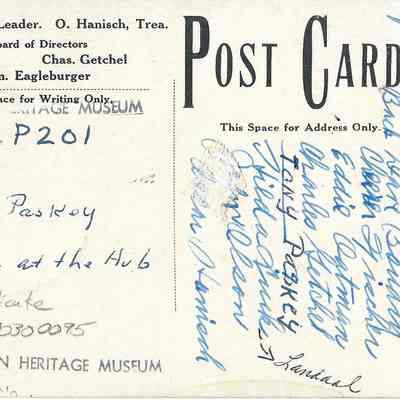 Leader. O. Hanisch, Trea.
ard of Directors
Chas. Getchel
n. Eagleburger
ce for Writing Only.
HERITAGE MUSEUM
P201
Paskey
at the Hub
icate
0300095
N HERITAGE MUSEUM
POST CARD
This Space for Address Only.
Bud
Charlie Fischer
Eddie Outman
Charles Getchel
Tony Paskey
Landaal
Wilson
Hanisch